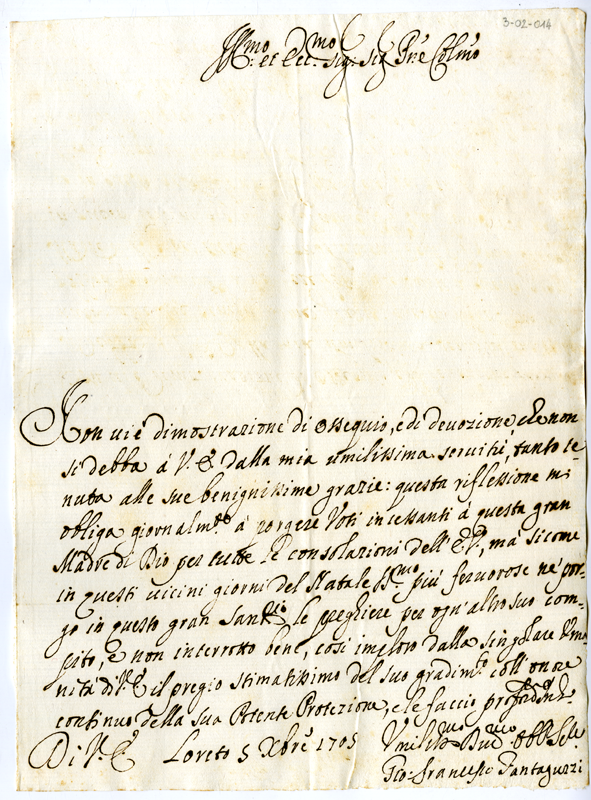 3-02-014
Ill:mo et Ecc:mo Sig: Sig Pr͠e Colmo
Non vi è dimostrazione di ossequio, e di devozione, che non
si debba à V. E. dalla mia umilissima servitù, tanto te-
nuta alle sue benignissime grazie: questa riflessione mi
obliga giornalmte à porgere Voti incessanti à questa gran
Madre di Dio per tutte le consolazioni dell' E. V., mà sicome
in questi vicini giorni del Natale SSmo più fervorose nè por-
go in questo gran Sanrio le preghiere per ogn' altro suo com-
pito, e non interrotto bene, così imploro dalla singolare Uma
nità di V. E. il pregio stimatissimo del suo gradimto coll' onore
continuo della sua Potente Protezione, e le faccio profondma
Di V. E. Loreto 5 Xbre 1705
Umilmo Obb
Gio: Francesco Fantaguzzi